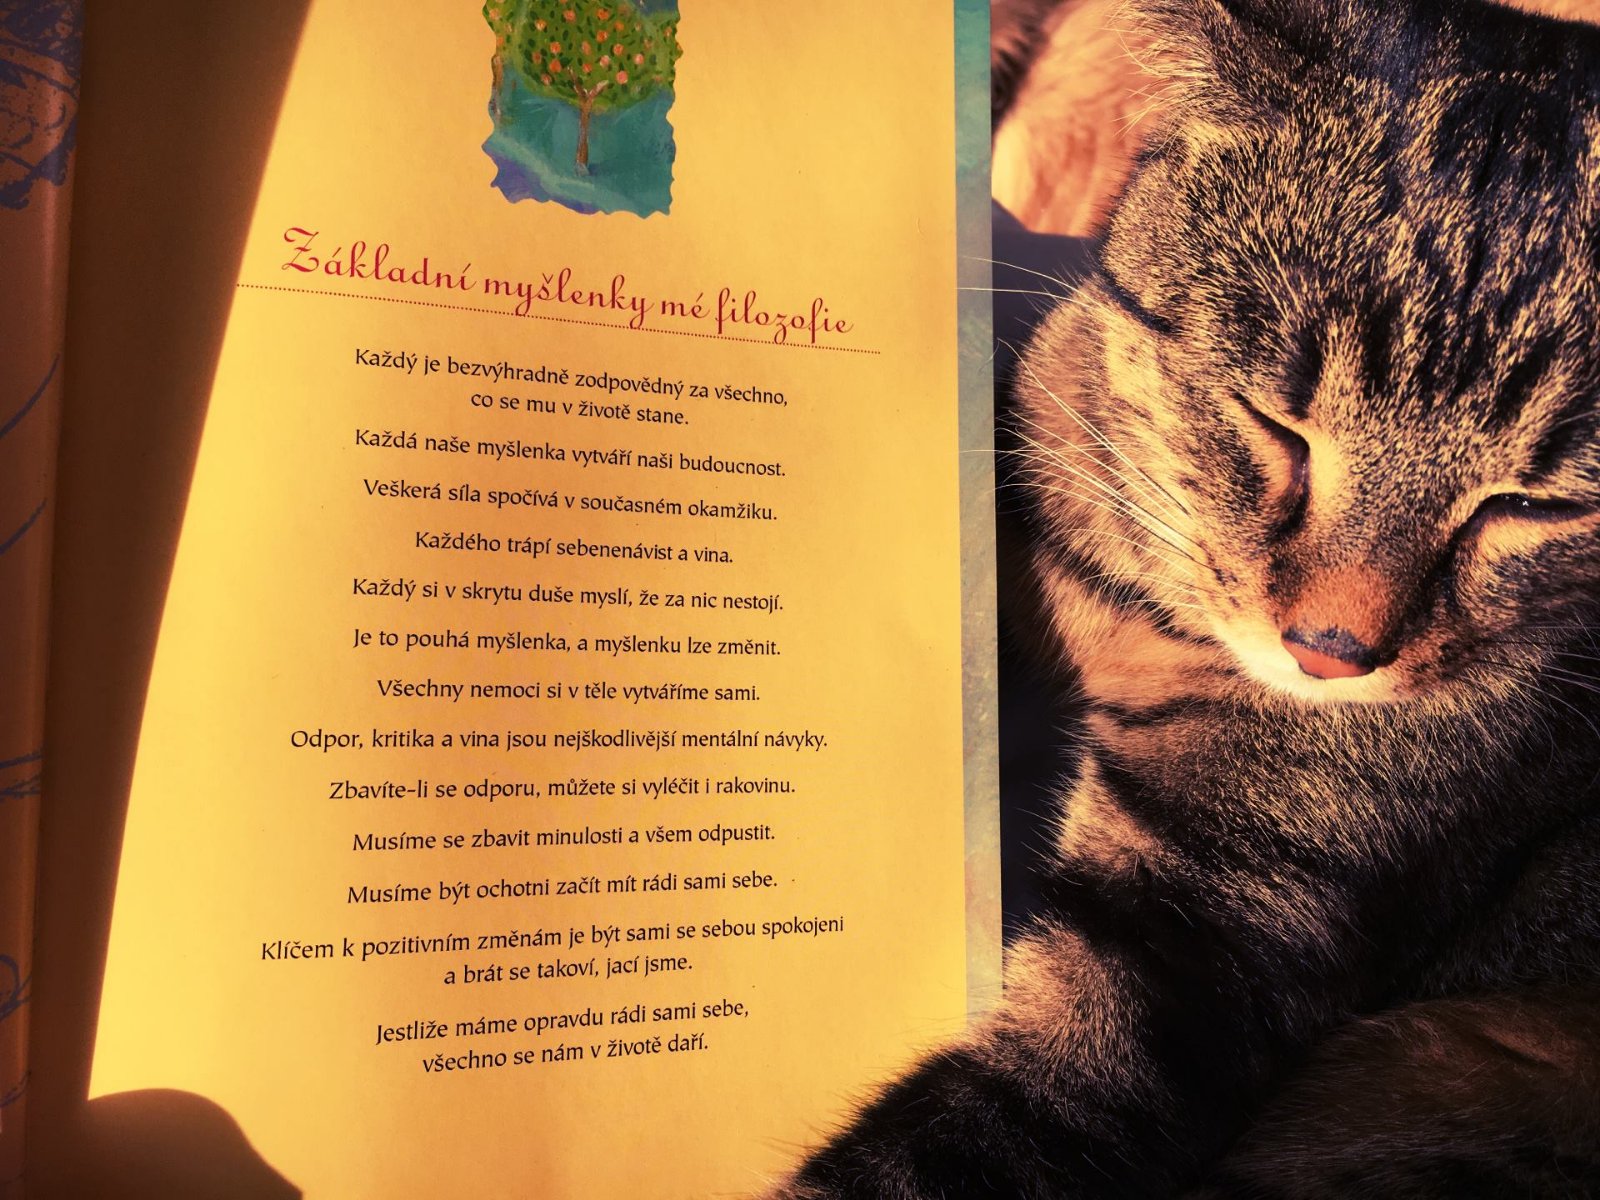 Základní myšlenky mé filozofie
Každý je bezvýhradně zodpovědný za všechno,
co se mu v životě stane.
Každá naše myšlenka vytváří naši budoucnost.
Veškerá síla spočívá v současném okamžiku.
Každého trápí sebenenávist a vina.
Každý si v skrytu duše myslí, že za nic nestojí.
Je to pouhá myšlenka, a myšlenku lze změnit.
Všechny nemoci si v těle vytváříme sami.
Odpor, kritika a vina jsou nejškodlivější mentální návyky.
Zbavíte-li se odporu, můžete si vyléčit i rakovinu.
Musíme se zbavit minulosti a všem odpustit.
Musíme být ochotni začít mít rádi sami sebe.
Klíčem k pozitivním změnám je být sami se sebou spokojeni
a brát se takoví, jací jsme.
Jestliže máme opravdu rádi sami sebe,
všechno se nám v životě daří.